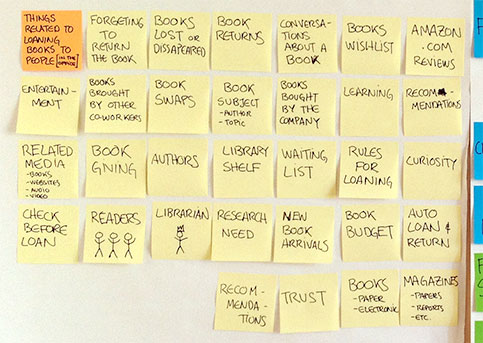 THINGS
RELATED TO
LOANING
BOOKS TO
PEOPLE (IN THE OFFICE)
FORGETING
TO
RETURN
THE BOOK
BOOKS
LOST OR
DISSAPEARED
BOOK
RETURNS
CONVERSA-
TIONS
ABOUT A
BOOK
BOOKS
WISHLIST
AMAZON
.COM
REVIEWS
ENTERTAIN-
MENT
BOOKS
BROUGHT
BY OTHER
CO-WORKERS
BOOK
SWAPS
BOOK
SUBJECT
- AUTHOR
- TOPIC
BOOKS
BOUGHT
BY THE
COMPANY
LEARNING
RECOM-
MENDATIONS
RELATED
MEDIA
- BOOKS
- WEBSITES
- AUDIO
- VIDEO
BOOK
GIVING
AUTHORS
LIBRARY
SHELF
WAITING
LIST
RULES
FOR
LOANING
CURIOSITY
CHECK
BEFORE
LOAN
READERS
LIBRARIAN
RESEARCH
NEED
NEW
BOOK
ARRIVALS
BOOK
BUDGET
AUTO
LOAN &
RETURN
RECOM-
MENDA-
TIONS
TRUST
BOOKS
- PAPER
- ELECTRONIC
MAGAZINES
- PAPERS
- REPORTS
- ETC.